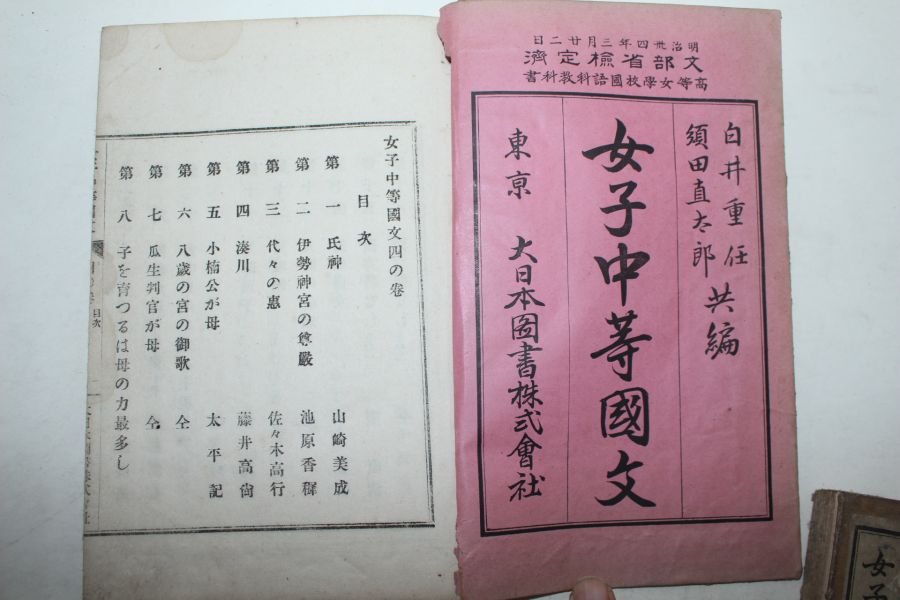 明治卅四年三月廿二日
文部省檢定濟
高等女學校國語科教科書
白井重任
須田直太郎
共編
女子中等國文
東京 大日本圖書株式會社
女子中等國文四の卷
目次
第一 氏神 山崎美成
第二 伊勢神宮の尊嚴 池原香穉
第三 代々の惠 佐々木高行
第四 湊川 藤井高尙
第五 小楠公が母 太平記
第六 八歳の宮の御歌 仝
第七 瓜生判官が母 仝
第八 子を育つるは母の力最多し
目次
女子